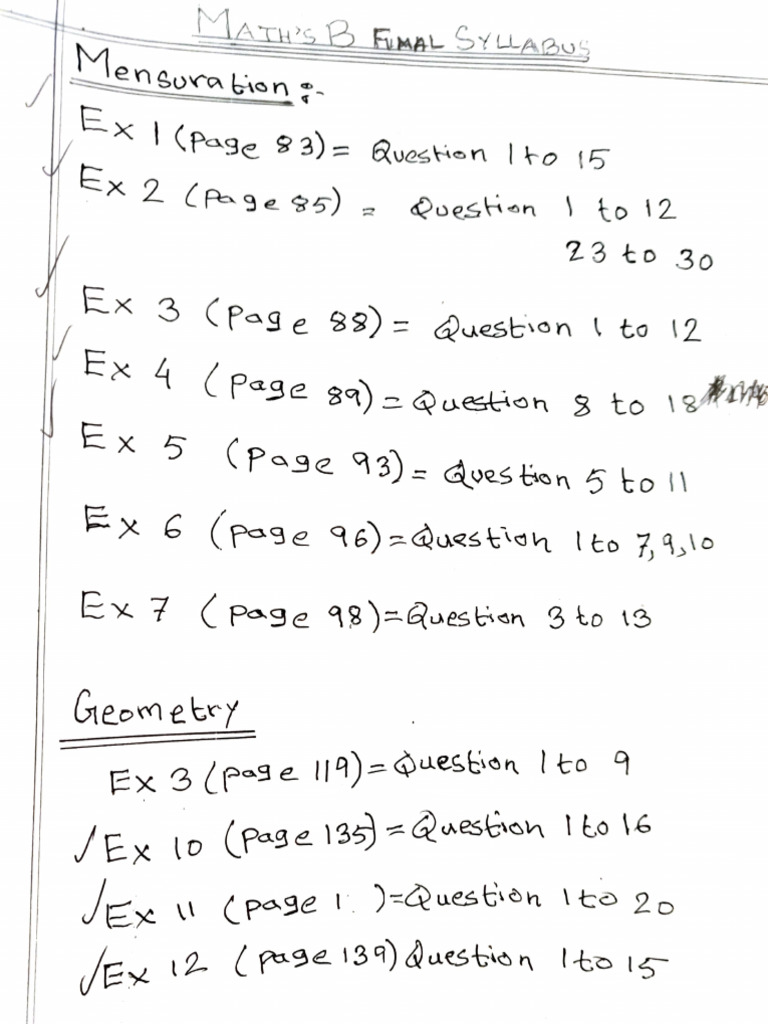 MATH'S B FINAL SYLLABUS
Mensuration :-
Ex 1 (Page 83) = Question 1 to 15
Ex 2 (Page 85) = Question 1 to 12
23 to 30
Ex 3 (Page 88) = Question 1 to 12
Ex 4 (Page 89) = Question 8 to 18
Ex 5 (Page 93) = Question 5 to 11
Ex 6 (Page 96) = Question 1 to 7, 9, 10
Ex 7 (Page 98) = Question 3 to 13
Geometry
Ex 3 (page 119) = Question 1 to 9
✓ Ex 10 (Page 135) = Question 1 to 16
✓ Ex 11 (page 1 ) = Question 1 to 20
✓ Ex 12 (page 139) Question 1 to 15